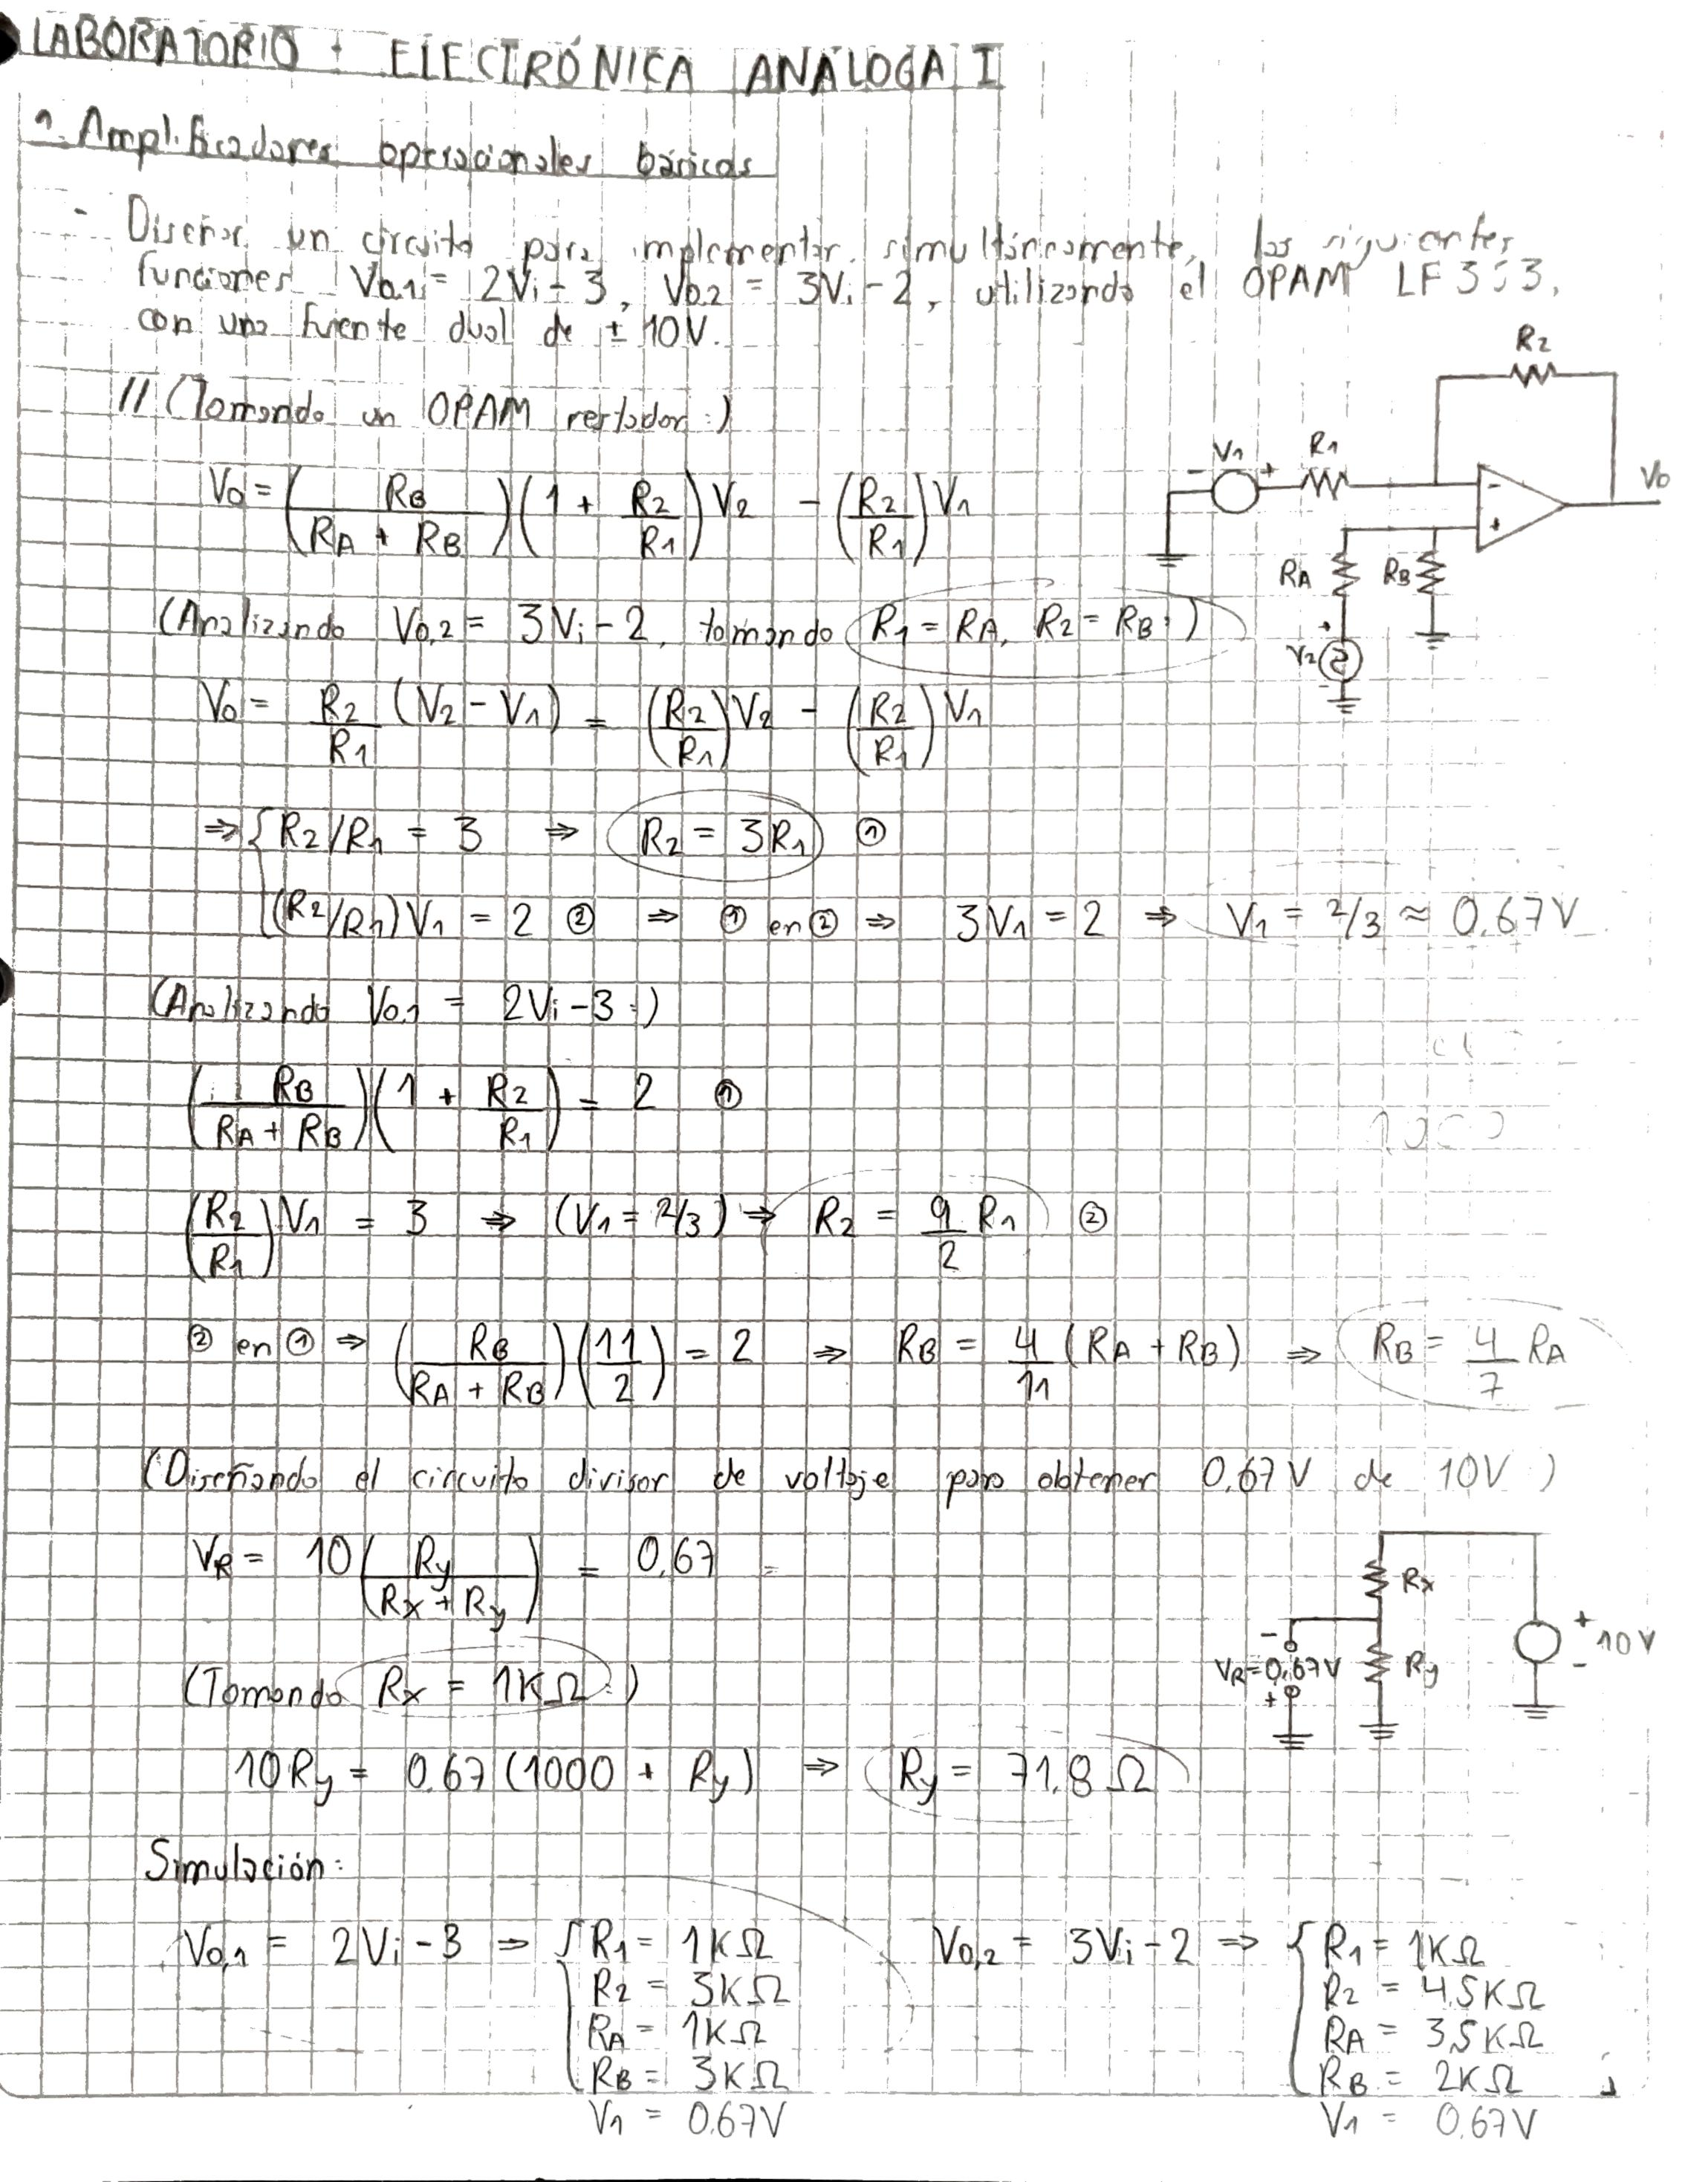 LABORATORIO - ELECTRÓNICA ANÁLOGA I
1. Amplificadores operacionales básicos
- Diseñar un circuito para implementar, simultáneamente, las siguientes
funciones Vo,1 = 2Vi - 3, Vo,2 = 3Vi - 2, utilizando el OPAM LF353,
con una fuente dual de ± 10V.
// (Tomando un OPAM restador:)
Vo = (RB / (RA + RB)) (1 + R2/R1) V2 - (R2/R1) V1
R2
V1
- +
R1
-
+
Vo
RA
RB
+
V2
-
(Analizando Vo,2 = 3Vi - 2, tomando R1 = RA, R2 = RB:)
Vo = R2/R1 (V2 - V1) = (R2/R1) V2 - (R2/R1) V1
⇒ { R2/R1 = 3 ⇒ R2 = 3R1 ①
(R2/R1) V1 = 2 ② ⇒ ① en ② ⇒ 3V1 = 2 ⇒ V1 = 2/3 ≈ 0.67V
(Analizando Vo,1 = 2Vi - 3:)
(RB / (RA + RB)) (1 + R2/R1) = 2 ①
(R2/R1) V1 = 3 ⇒ (V1 = 2/3) ⇒ R2 = 9/2 R1 ②
② en ① ⇒ (RB / (RA + RB)) (11/2) = 2 ⇒ RB = 4/11 (RA + RB) ⇒ RB = 4/7 RA
(Diseñando el circuito divisor de voltaje para obtener 0,67V de 10V)
VR = 10 (Ry / (Rx + Ry)) = 0,67
Rx
-
VR=0,67V
+
Ry
+
10V
-
(Tomando Rx = 1KΩ:)
10Ry = 0.67 (1000 + Ry) ⇒ Ry = 71.8 Ω
Simulación:
Vo,1 = 2Vi - 3 ⇒ { R1 = 1KΩ
R2 = 3KΩ
RA = 1KΩ
RB = 3KΩ
V1 = 0.67V
Vo,2 = 3Vi - 2 ⇒ { R1 = 1KΩ
R2 = 4.5KΩ
RA = 3,5KΩ
RB = 2KΩ
V1 = 0.67V